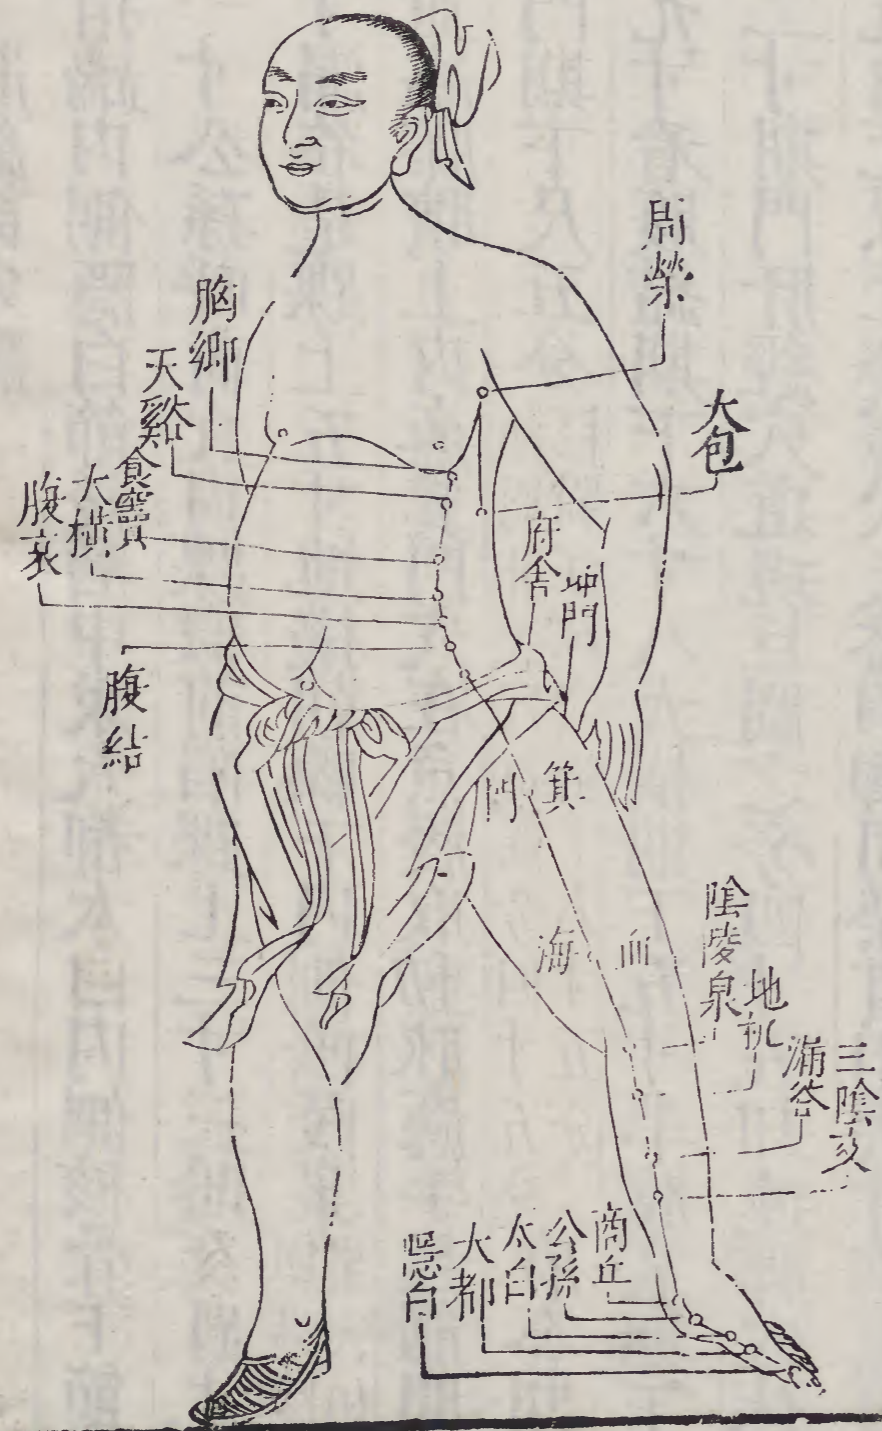 周榮
大包
胸鄉
天谿
食竇
大橫
腹哀
腹結
府舍
冲門
箕門
血海
陰陵泉
地机
漏谷
三陰交
商丘
公孫
太白
大都
隱白